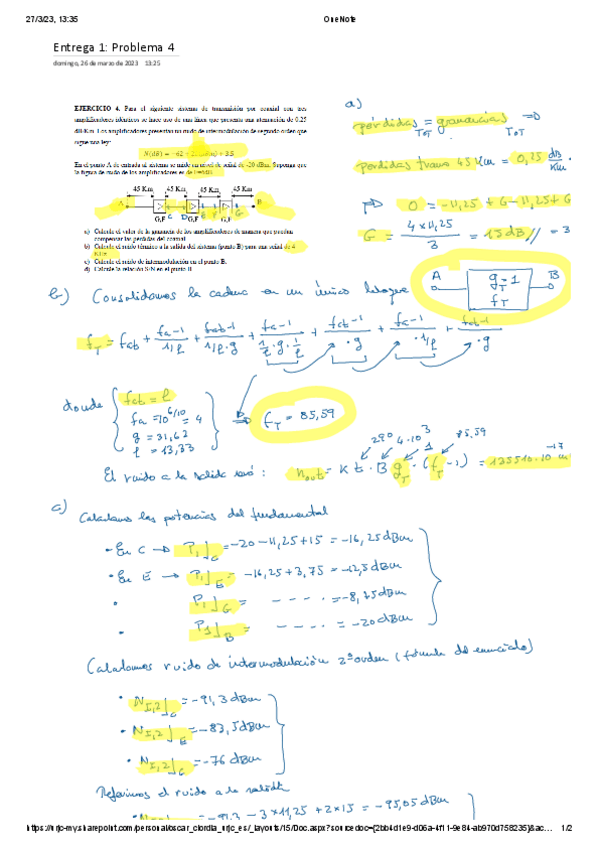 27/3/23, 13:35
OneNote
Entrega 1: Problema 4
domingo, 26 de marzo de 2023 13:25
EJERCICIO 4. Para el siguiente sistema de transmisión por coaxial con tres
amplificadores idénticos se hace uso de una línea que presenta una atenuación de 0,25
dB/Km. Los amplificadores presentan un ruido de intermodulación de segundo orden que
sigue una ley:
En el punto A de entrada al sistema se mide un nivel de señal de -20 dBm. Suponga que
la figura de ruido de los amplificadores es de F=6dB.
45 Km 45 Km 45 Km 45 Km
A G,F C D G,F E F G,F G B
a) Calcule el valor de la ganancia de los amplificadores de manera que puedan
compensar las pérdidas del coaxial
b) Calcule el ruido térmico a la salida del sistema (punto B) para una señal de 4
KHz
c) Calcule el ruido de intermodulación en el punto B.
d) Calcule la relación S/N en el punto B
a)
pérdidas TOT = ganancias TOT =>
Perdidas tramo 45 Km = 0,25 dB/Km ·
=> 0 = -11,25 + G - 11,25 + G
G = 4 x 11,25 / 3 = 15 dB // = 3
b) Consolidamos la cadena en un único bloque
A gT=1 fT B
fT = fcb + fa-1 / 1/l + fcb-1 / 1/l · g + fa-1 / 1/l · g · 1/l + fcb-1 / · g + fa-1 / · 1/l + fcb-1 / · g
donde
fcb = l
fa = 10^6/10 = 4
g = 31,62
l = 13,33
=> fT = 85,59
290 4·10^3 1 85,59
El ruido a la salida será: nout = K t · B gT · (fT - 1) = 135510·10^-17
c) Calculamos las potencias del fundamental
• En C → P1]C = -20 - 11,25 + 15 = -16,25 dBm
• En E → P1]E = -16,25 + 3,75 = -12,5 dBm
• P1]G = - - - - · = -8,75 dBm
• P1]B = - - - - · = -20 dBm
Calculamos ruido de intermodulación 2º orden (fórmula del enunciado)
• NI,2]C = -91,3 dBm
• NI,2]E = -83,5 dBm
• NI,2]G = -76 dBm
Referimos el ruido a la salida
= -91,3 - 3 x 11,25 + 2 x 15 = -95,05 dBm
1/2